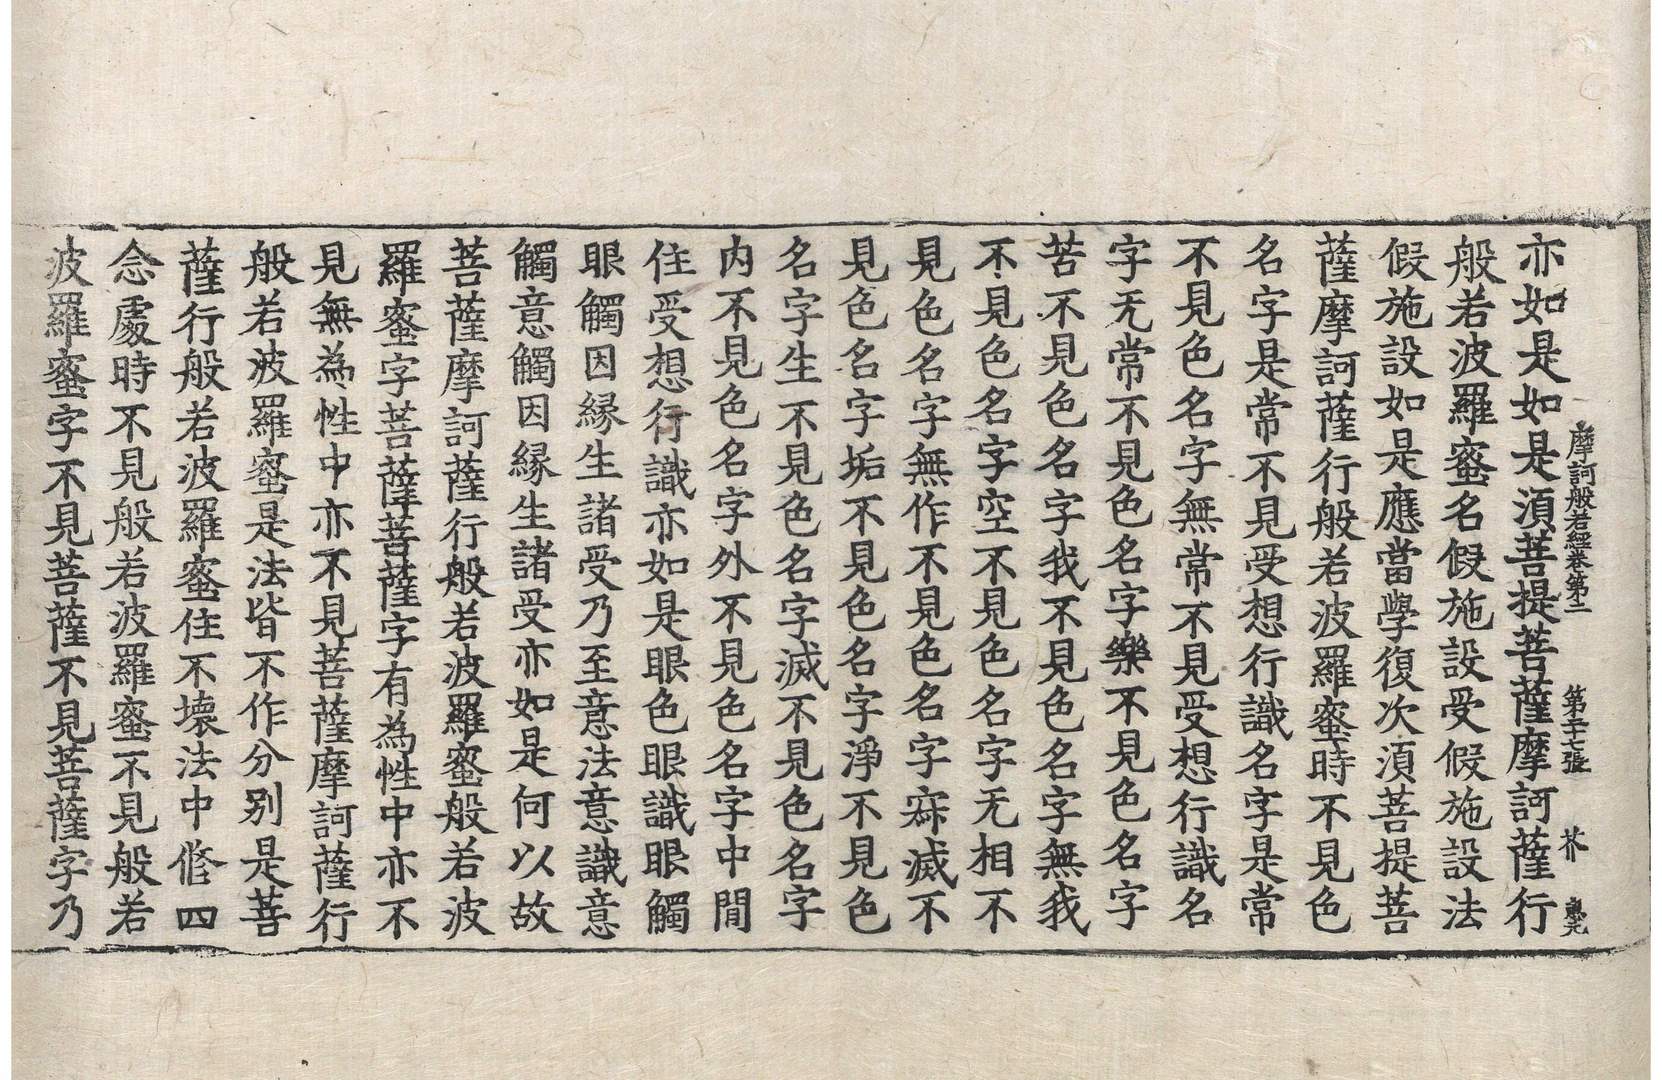 摩訶般若經卷第二 第二十七張 芥
亦如是如是湏菩提菩薩摩訶薩行
般若波羅蜜名假施設受假施設法
假施設如是應當學復次湏菩提菩
薩摩訶薩行般若波羅蜜時不見色
名字是常不見受想行識名字是常
不見色名字無常不見受想行識名
字无常不見色名字樂不見色名字
苦不見色名字我不見色名字無我
不見色名字空不見色名字无相不
見色名字無作不見色名字寂滅不
見色名字垢不見色名字淨不見色
名字生不見色名字滅不見色名字
内不見色名字外不見色名字中間
住受想行識亦如是眼色眼識眼觸
眼觸因縁生諸受乃至意法意識意
觸意觸因縁生諸受亦如是何以故
菩薩摩訶薩行般若波羅蜜般若波
羅蜜字菩薩菩薩字有為性中亦不
見無為性中亦不見菩薩摩訶薩行
般若波羅蜜是法皆不作分別是菩
薩行般若波羅蜜住不壊法中脩四
念處時不見般若波羅蜜不見般若
波羅蜜字不見菩薩不見菩薩字乃